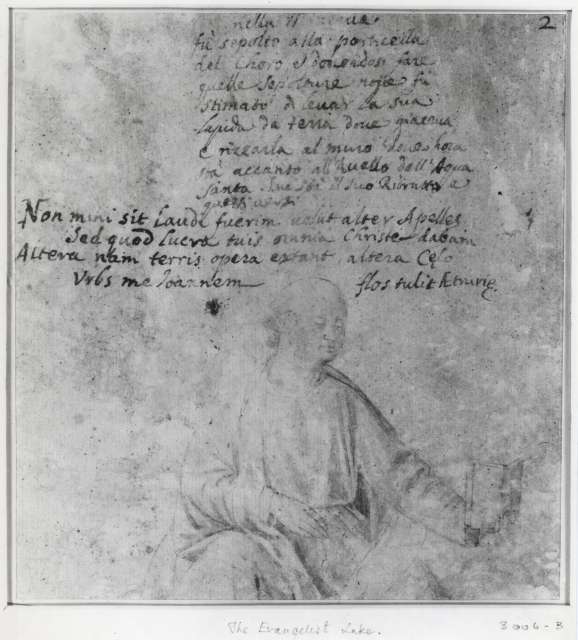 2
nella
fù sepolto alla porticella
del Choro e dovendosi fare
quelle Sepolture
stimato di levar la sua
lapida da terra dove giaceva
e rizzarla al muro dove hora
stà accanto all'Avello dell'Aqua
Santa il suo Ritratto e
questi versi
Non mihi sit laudi fuerim velut alter Apelles
Sed quod lucra tuis omnia Christe dabam
Altera nam terris opera extant altera Cęlo
Urbs me Ioannem flos tulit Etrurię
The Evangelist Luke.
3004-3